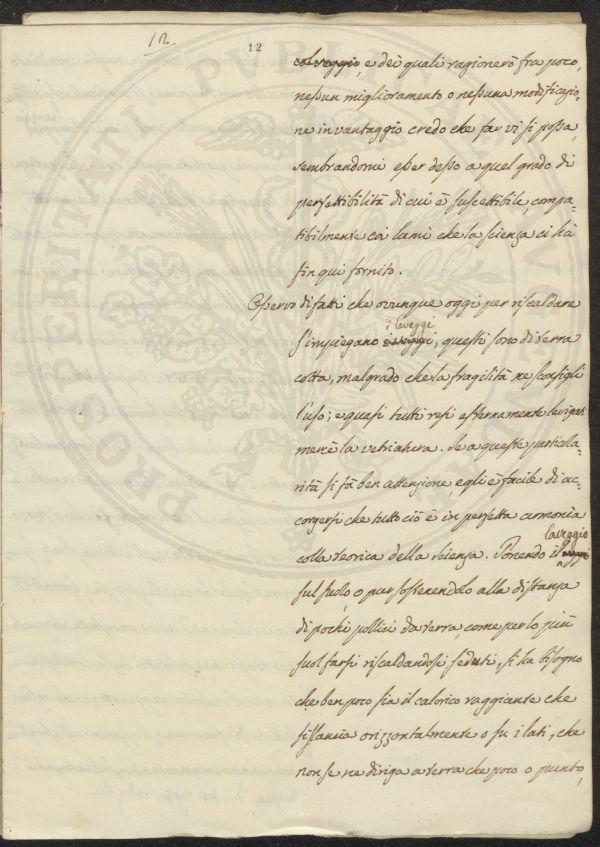 12
12
col veggio, e dei quali ragionerò fra poco,
nessun miglioramento o nessuna modificazio-
ne in vantaggio credo che far vi si possa,
sembrandomi esser desso a quel grado di
perfettibilità di cui è suscettibile, compa-
tibilmente coi lumi che la scienza ci hà
fin qui fornito.
Osservo difatti che ovunque oggi per riscaldare
i laveggi
s'impiegano, questi sono di terra
cotta, malgrado che la fragilità ne sconsigli
l'uso; e quasi tutti resi esternamente levigati
mercè la vetriatura. Se a queste particola-
rità si fà ben attenzione, egli è facile di ac-
corgersi che tutto ciò è in perfetta armonia
laveggio
colla teorica della scienza. Ponendo il
sul suolo, o pur sostenendolo alla distanza
di pochi pollici da terra, come per lo più
suol farsi riscaldandosi seduti, si ha bisogno
che ben poco sia il calorico raggiante che
si slancia orizzontalmente o su i lati, che
non se ne diriga a terra che poco o punto,
PROSPERITATI PVBLICAE